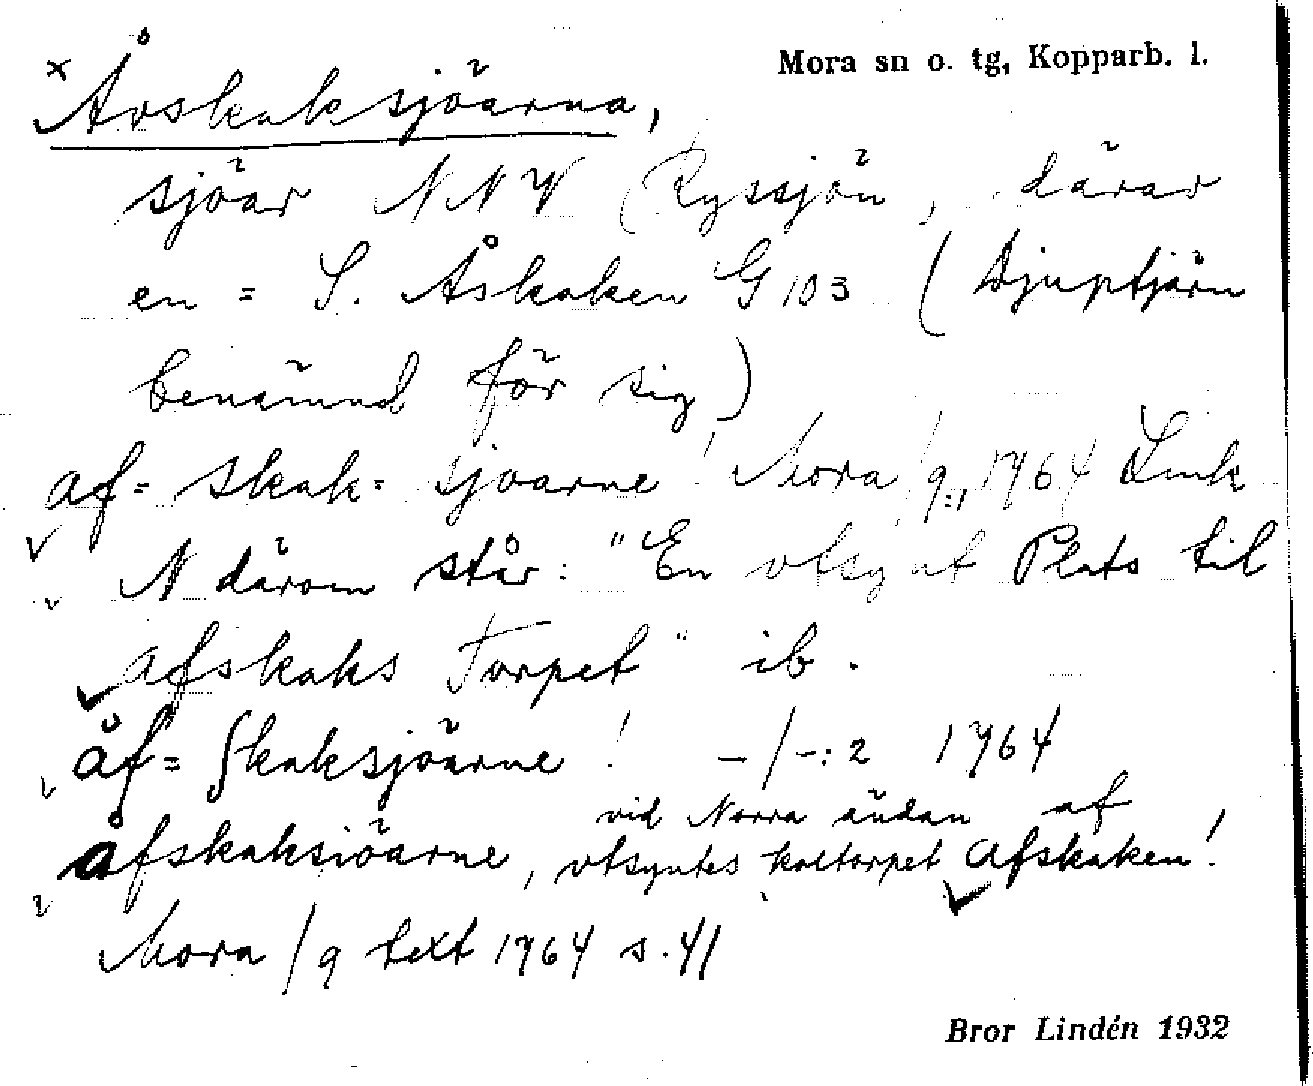 Mora sn o. tg, Kopparb. l.
× Åvskaksjöarna,
sjöar NNV (Ryssjön, därav
en = S. Åskaken G 103 (Djuptjärn
benämnd för sig)
af= skak= sjöarne! Mora /9:1 1764 Link
N därom står: "En vtsynt Plats til
afskaks Torpet" ib.
åf= Skaksjöarne! –/–:2 1764
vid Norra ändan af
åfskaksiöarne, vtsyntes koltorpet Afskaken!
Mora /9 text 1764 s. 41
Bror Lindén 1932